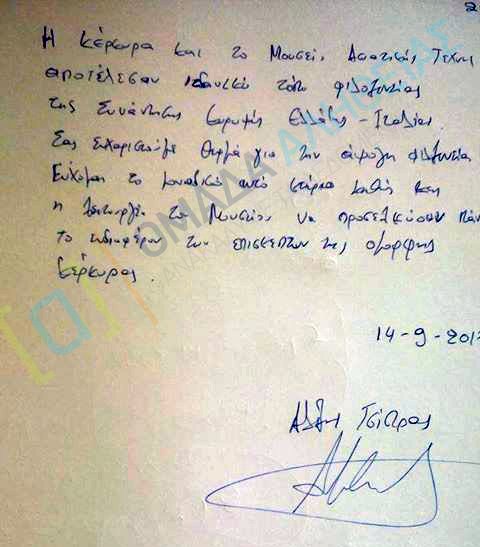 Η Κέρκυρα και το Μουσείο Ασιατικής Τέχνης
αποτέλεσαν ιδανικό τόπο φιλοξενίας
της Συνάντησης Κορυφής Ελλάδας - Ιταλίας
Σας ευχαριστούμε θερμά για την άψογη φιλοξενία
Εύχομαι το μοναδικό αυτό κτίριο καθώς και
η λειτουργία του Μουσείου να προσελκύσουν πάν
το ενδιαφέρον των επισκεπτών της όμορφης
Κέρκυρας.
14-9-201
Τσίπρας
ΟΜΑΔΑ ΑΛΗΘΕΙΑΣ